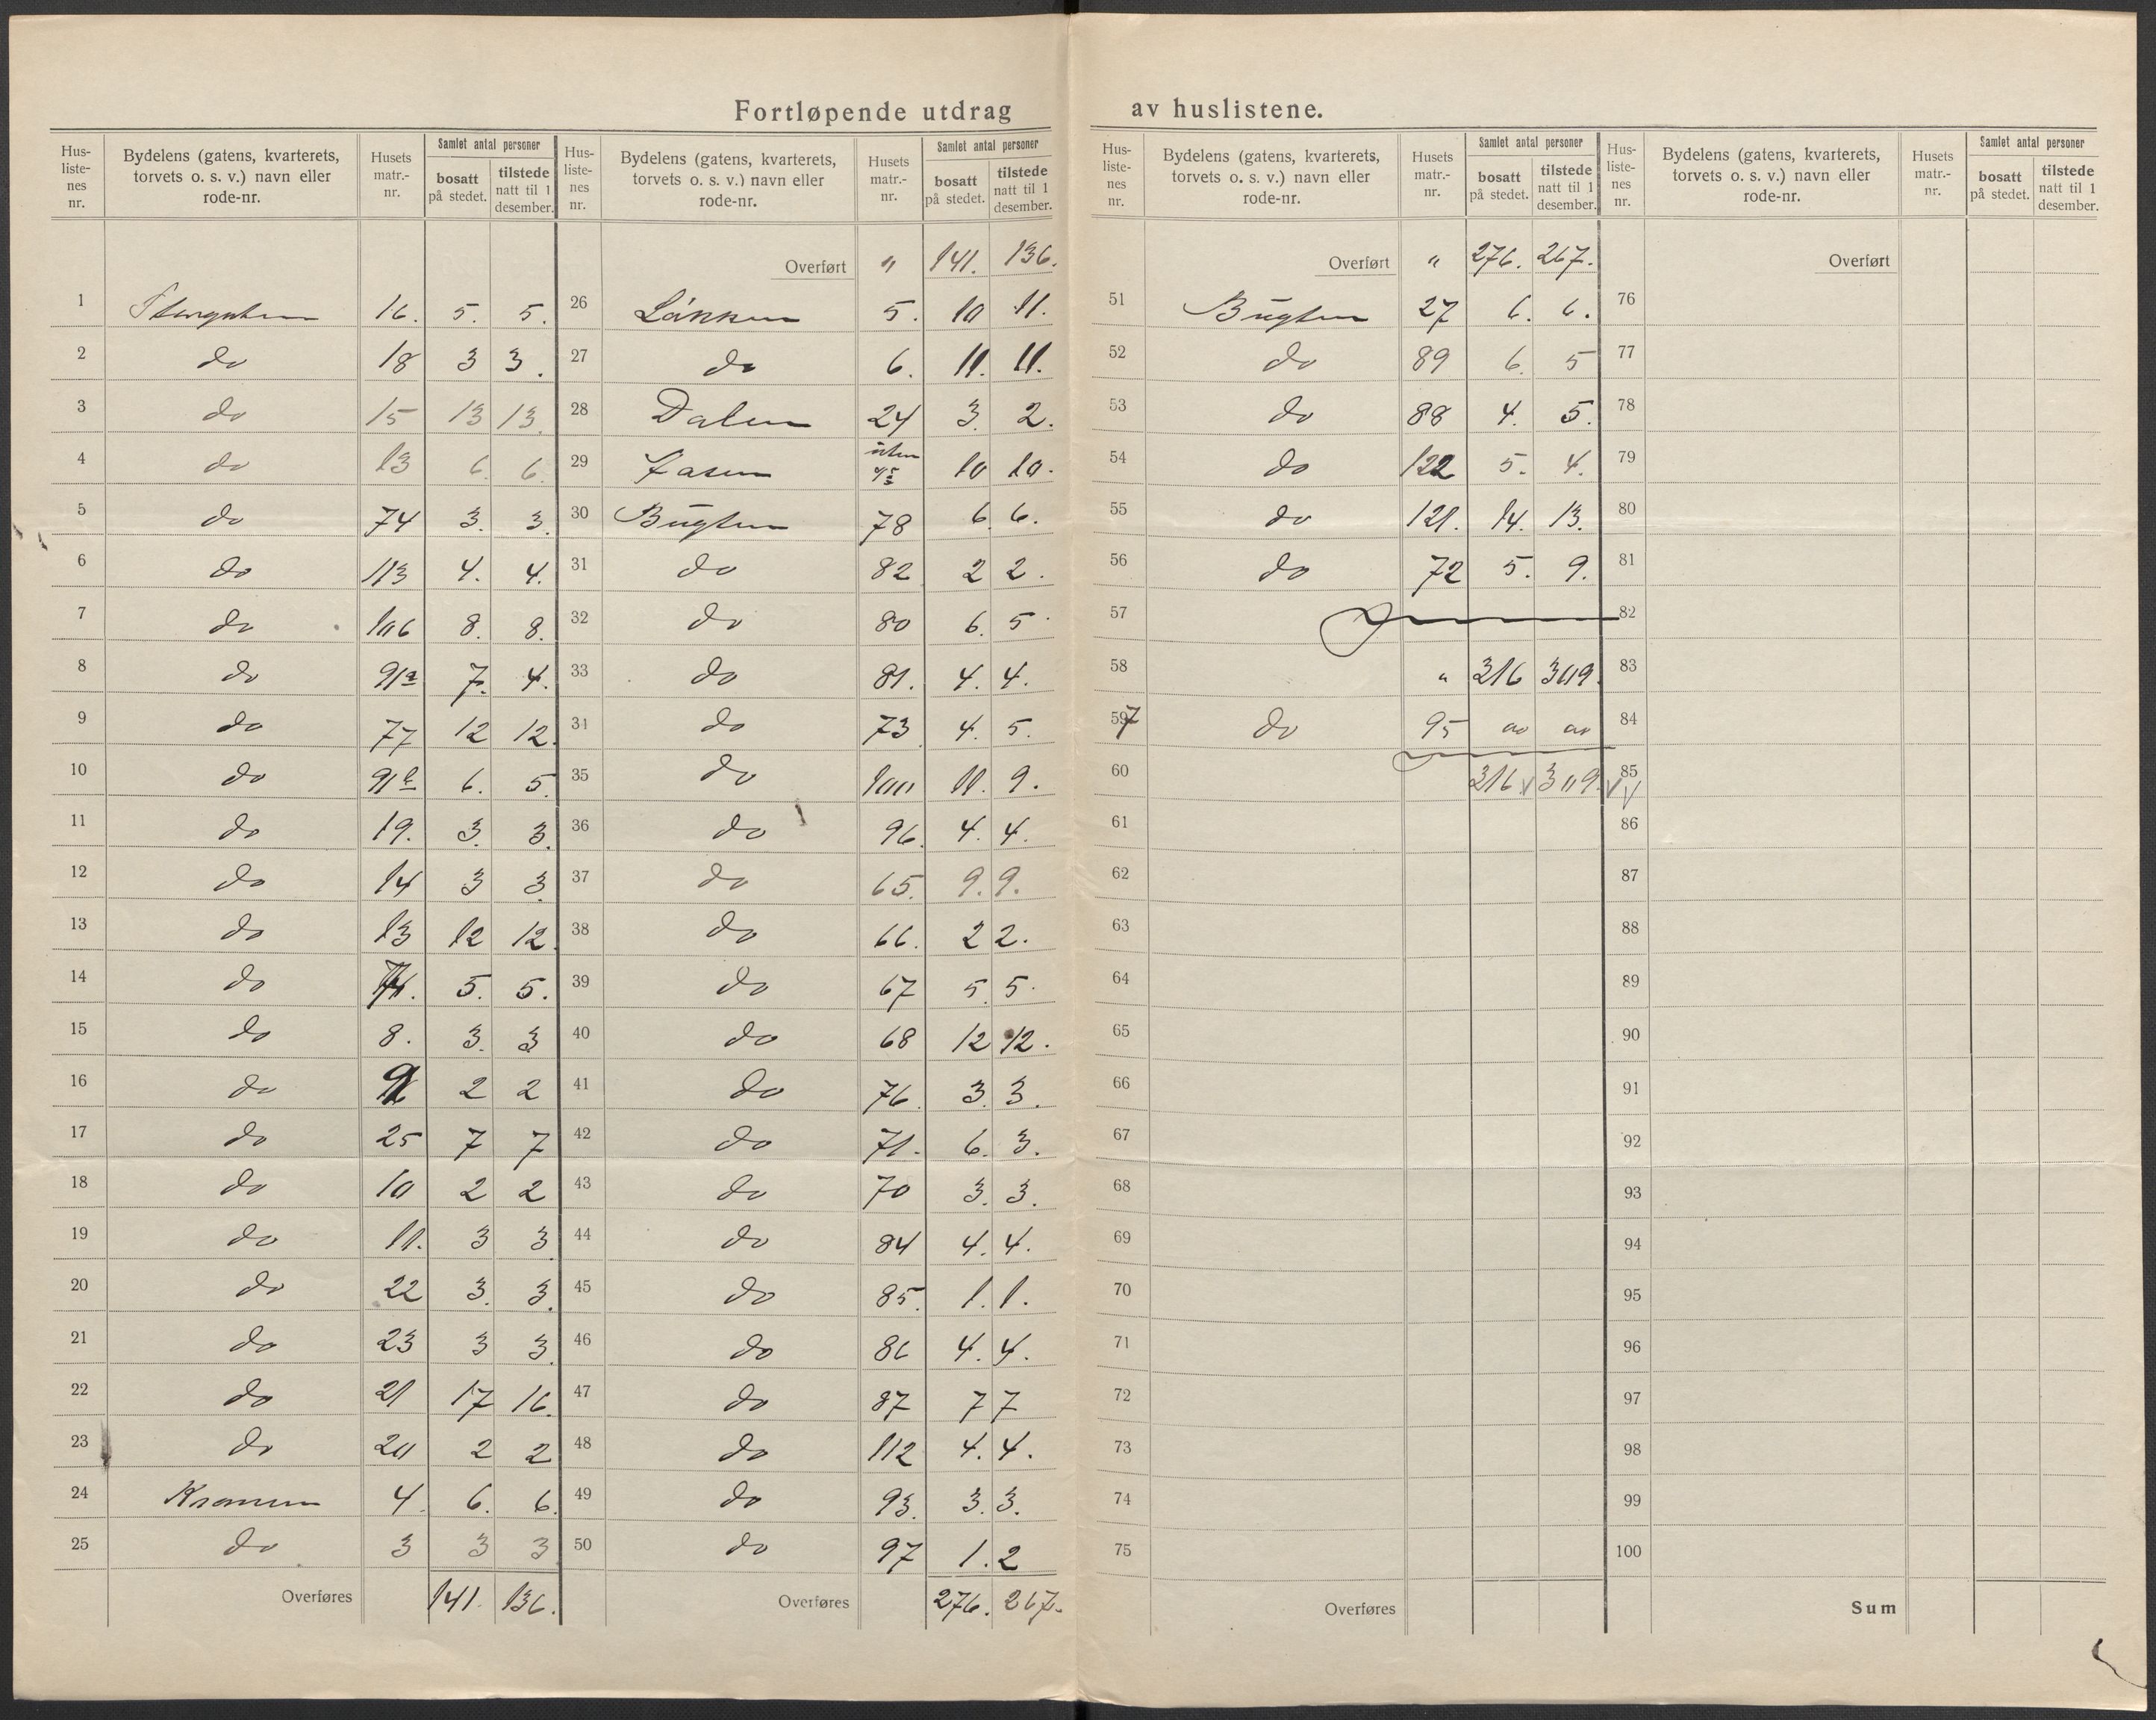 Fortløpende utdrag av huslistene.
Hus-liste-nes nr. | Bydelens (gatens, kvarterets, torvets o. s. v.) navn eller rode-nr. | Husets matr.-nr. | Samlet antal personer | bosatt på stedet. | tilstede natt til 1 desember.
1 16. 5. 5.
2 do 18 3 3.
3 do 15 13 13.
4 do 13 6. 6.
5 do 74 3. 3.
6 do 113 4. 4.
7 do 106 8. 8.
8 do 91a 7. 4.
9 do 77 12 12.
10 do 91b 6. 5.
11 do 19. 3. 3.
12 do 14 3 3.
13 do 13 12 12.
14 do 5. 5.
15 do 8. 3. 3
16 do 2 2
17 do 25 7 7
18 do 10 2 2
19 do 11. 3 3.
20 do 22 3. 3.
21 do 23 3 3.
22 do 21 17 16.
23 do 20 2 2
24 4. 6. 6.
25 do 3 3 3
Overføres 141. 136.
Hus-liste-nes nr. | Bydelens (gatens, kvarterets, torvets o. s. v.) navn eller rode-nr. | Husets matr.-nr. | Samlet antal personer | bosatt på stedet. | tilstede natt til 1 desember.
Overført " 141. 136.
26 Løkken 5. 10 11.
27 do 6. 11. 11.
28 Dalen 24 3. 2.
29 10 10.
30 Bugten 78 6. 6.
31 do 82 2 2.
32 do 80 6. 5
33 do 81. 4. 4.
34 do 73 4. 5.
35 do 100 11. 9.
36 do 96. 4. 4.
37 do 65. 9. 9.
38 do 66. 2 2.
39 do 67 5. 5.
40 do 68 12 12.
41 do 76. 3. 3.
42 do 71. 6. 3.
43 do 70 3. 3.
44 do 84 4. 4.
45 do 85. 1. 1.
46 do 86 4. 4.
47 do 87 7 7
48 do 112 4. 4.
49 do 93. 3. 3.
50 do 97 1. 2
Overføres 276. 267.
Hus-liste-nes nr. | Bydelens (gatens, kvarterets, torvets o. s. v.) navn eller rode-nr. | Husets matr.-nr. | Samlet antal personer | bosatt på stedet. | tilstede natt til 1 desember.
Overført " 276. 267.
51 Bugten 27 6. 6.
52 do 89 6. 5
53 do 88 4. 5.
54 do 122 5. 4.
55 do 121. 14. 13.
56 do 72 5. 9.
57
58 " 316 309.
59 7 do 95
60 316. 309.
61
62
63
64
65
66
67
68
69
70
71
72
73
74
75
Overføres
Hus-liste-nes nr. | Bydelens (gatens, kvarterets, torvets o. s. v.) navn eller rode-nr. | Husets matr.-nr. | Samlet antal personer | bosatt på stedet. | tilstede natt til 1 desember.
Overført
76
77
78
79
80
81
82
83
84
85
86
87
88
89
90
91
92
93
94
95
96
97
98
99
100
Sum